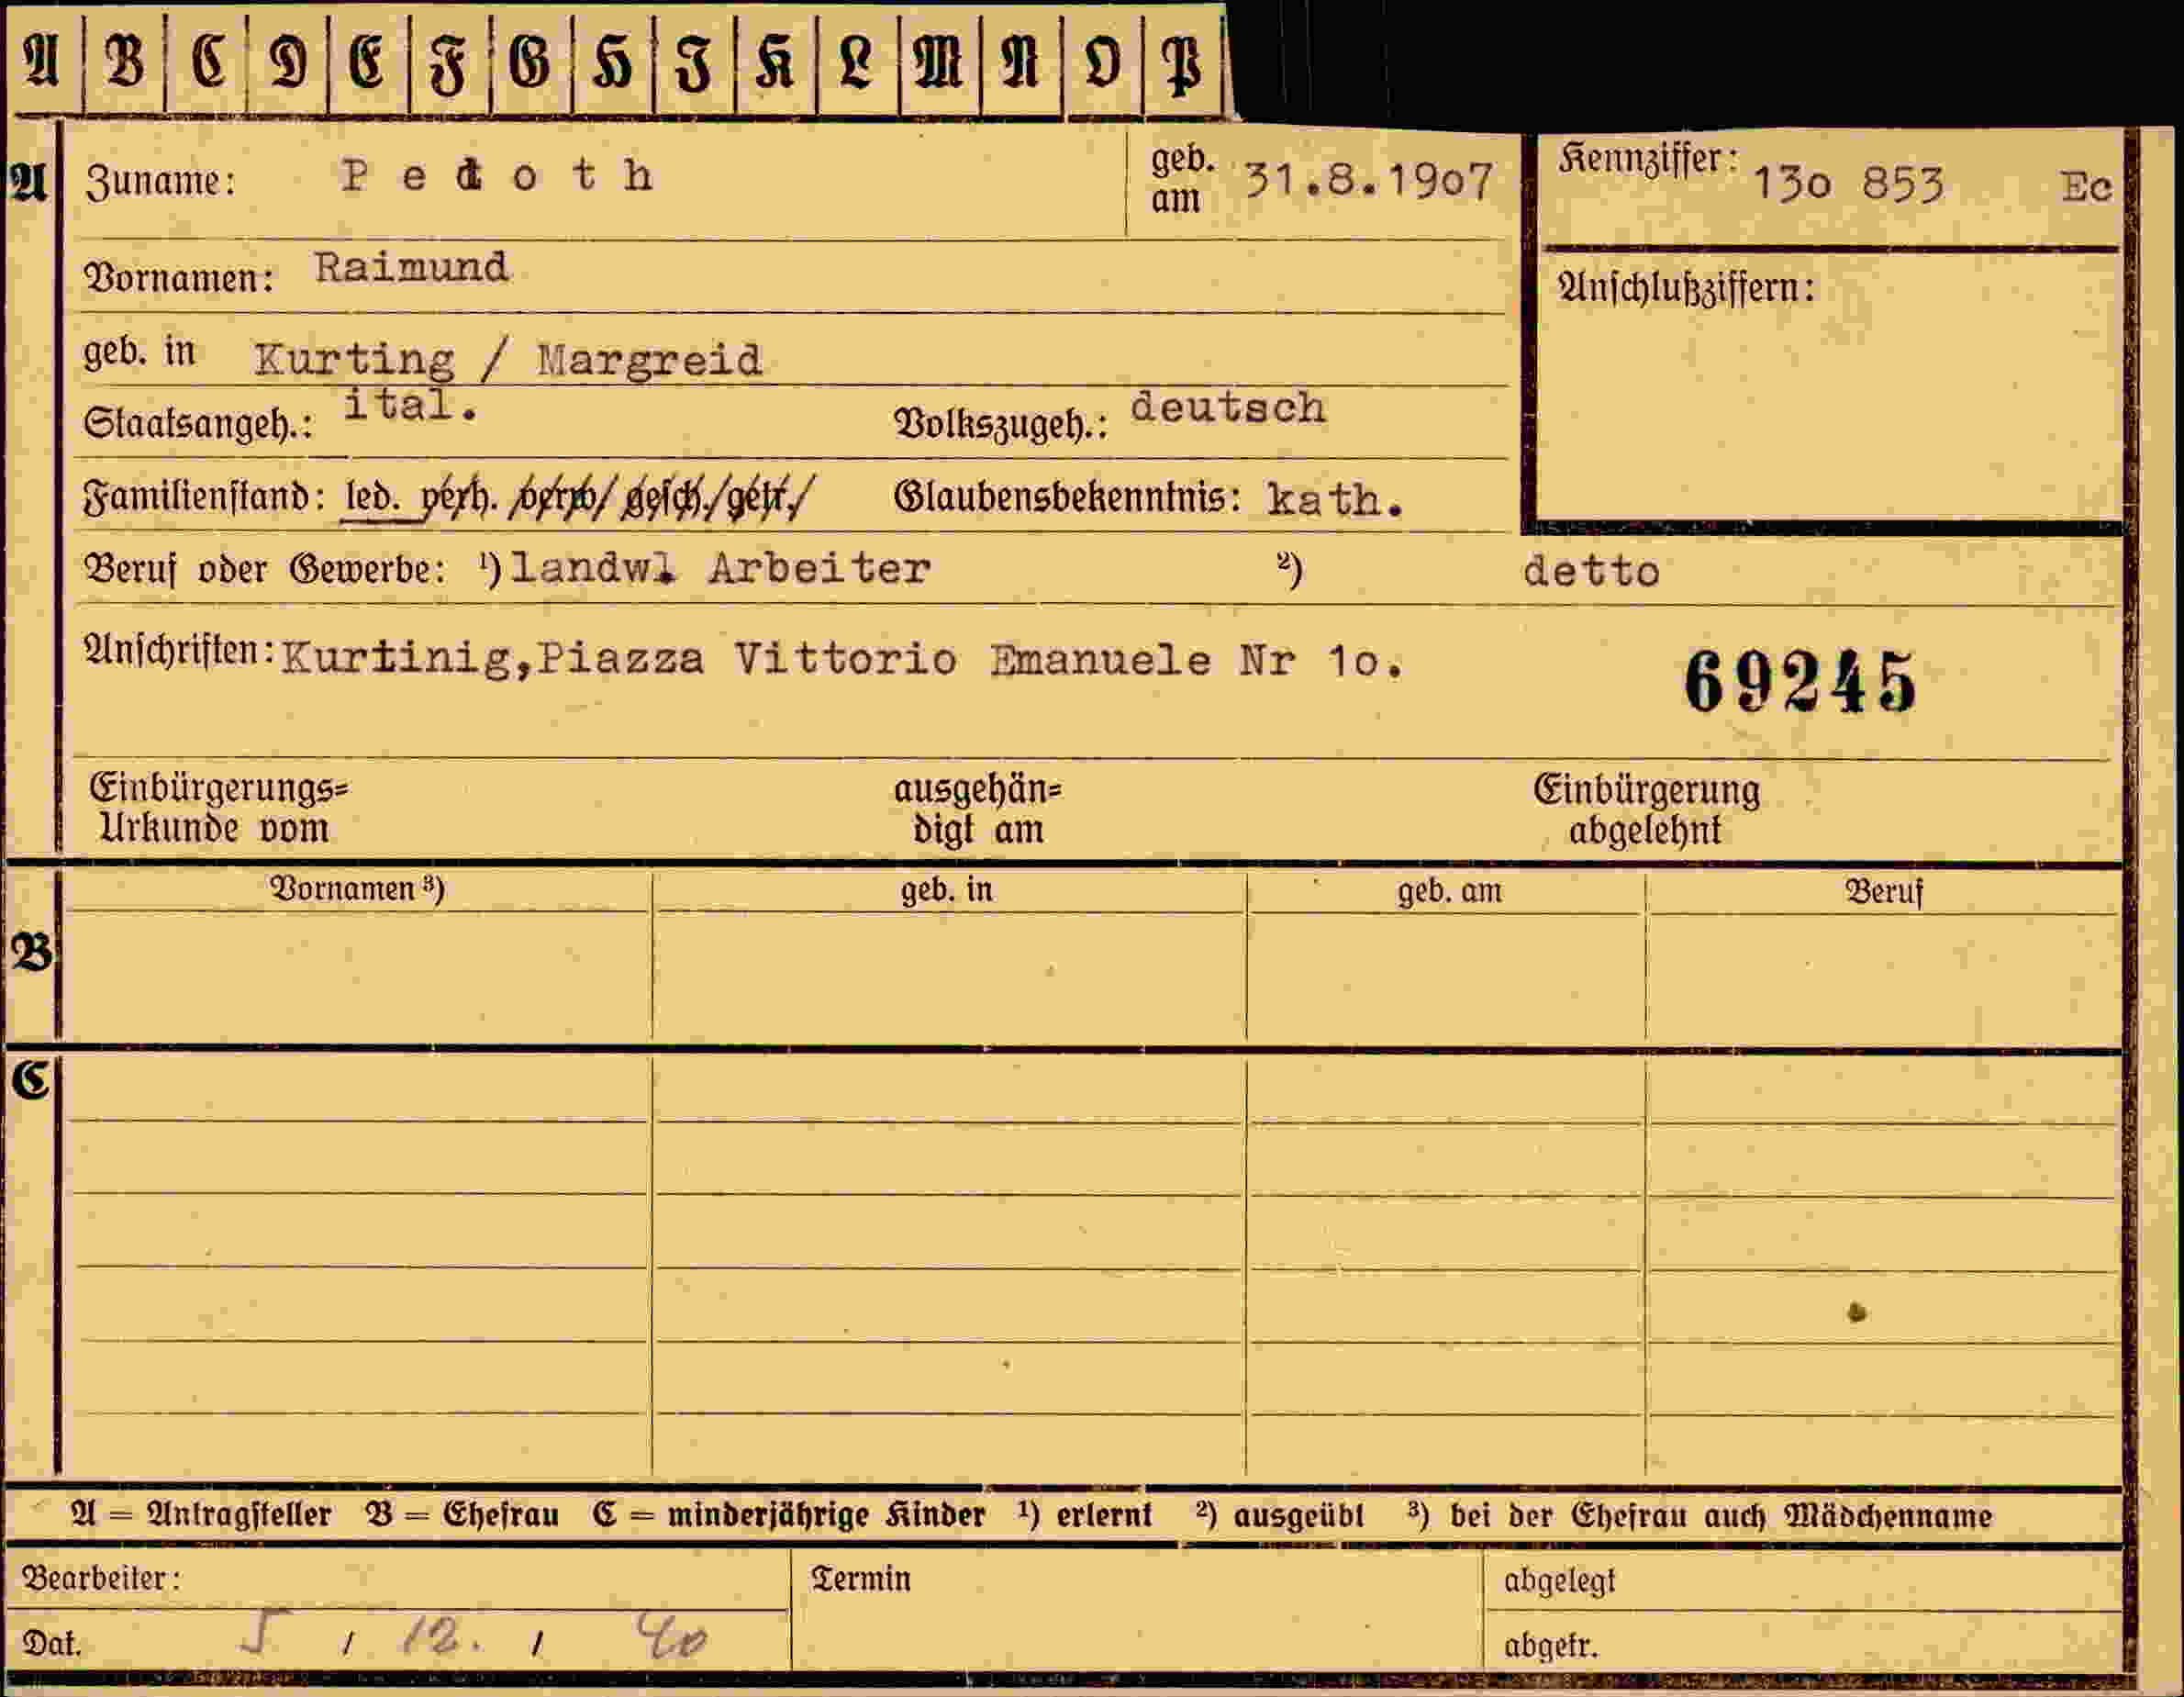 A B C D E F G H I K L M N O P
A Zuname: Pedoth geb. am 31.8.19o7 Kennziffer: 13o 853 Ec
Vornamen: Raimund
Anschlußziffern:
geb. in Kurting / Margreid
Staatsangeh.: ital. Volkszugeh.: deutsch
Familienstand: led. verh. verw. gesch. getr. Glaubensbekenntnis: kath.
Beruf oder Gewerbe: ¹) landwl Arbeiter ²) detto
Anschriften: Kurtinig,Piazza Vittorio Emanuele Nr 1o.
69245
Einbürgerungs= ausgehän= Einbürgerung
Urkunde vom digt am abgelehnt
Vornamen ³) geb. in geb. am Beruf
B
C
A = Antragsteller B = Ehefrau C = minderjährige Kinder ¹) erlernt ²) ausgeübt ³) bei der Ehefrau auch Mädchenname
Bearbeiter: Termin abgelegt
Dat. 5 / 12. / 40 abgetr.